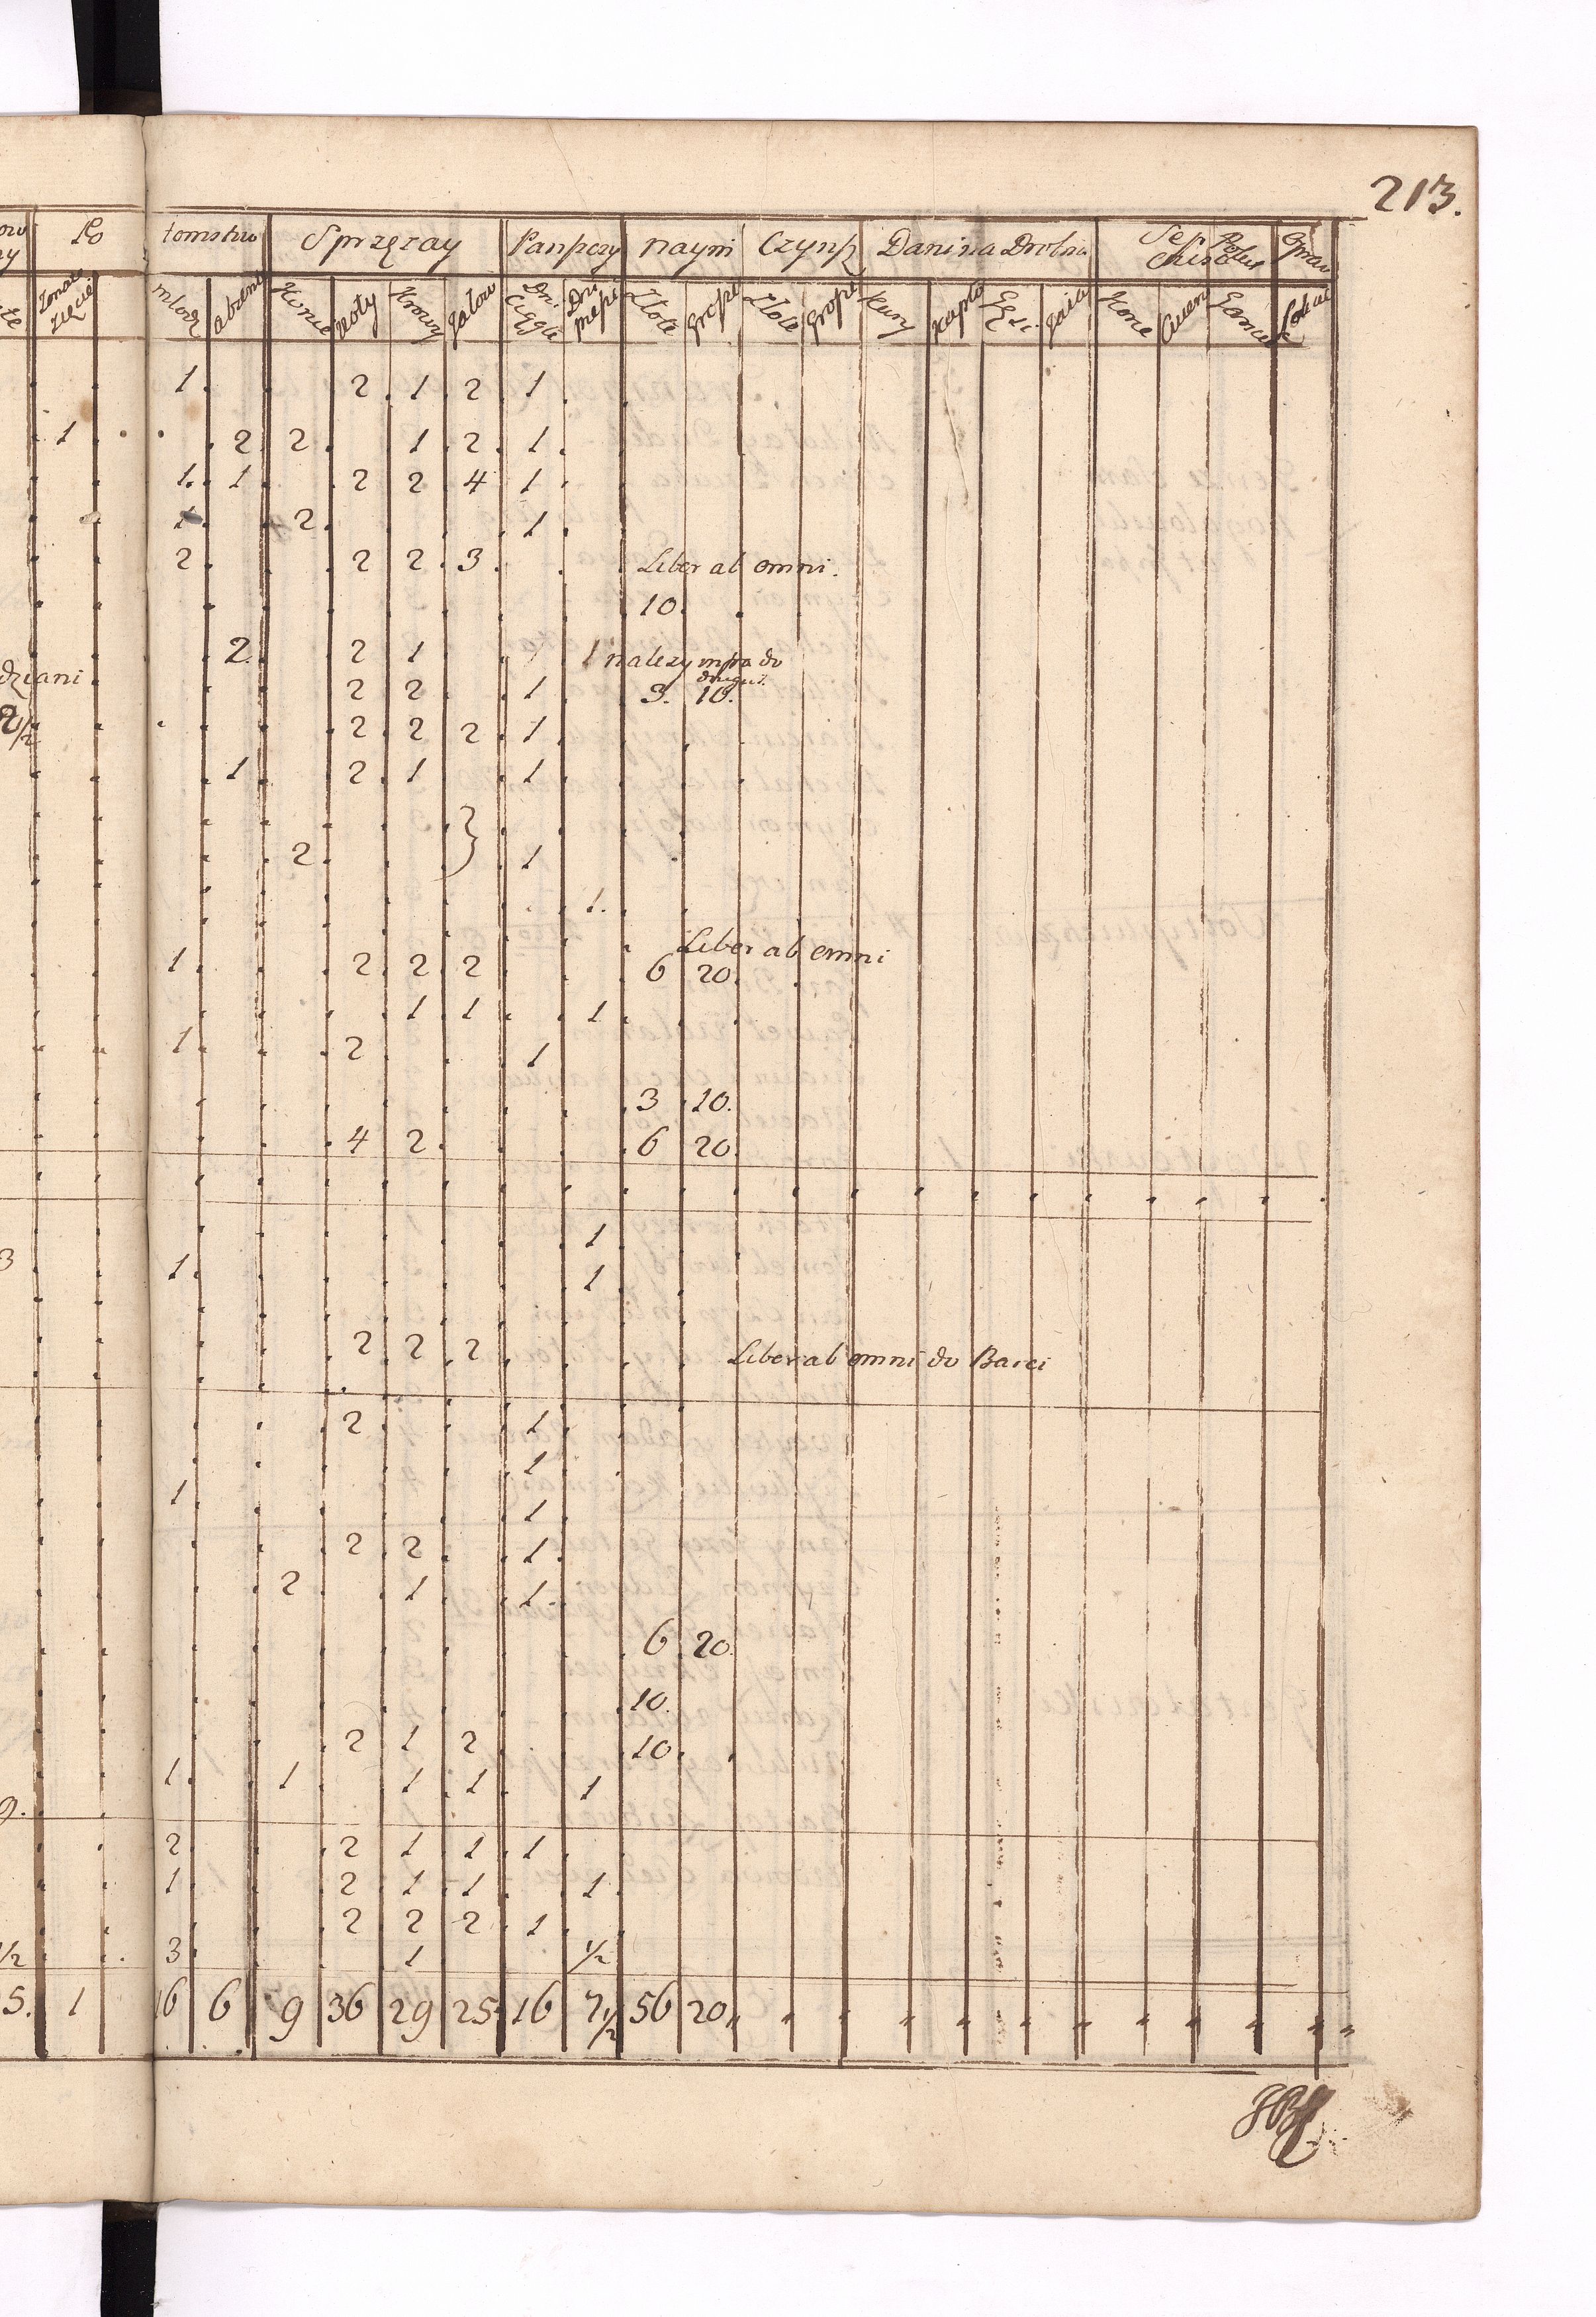 213.
Po tomstwo Sprzęzay Panpczy naym Czynp Danina Drobna
zonate zięcie młodz Konie Woły Krowy Jałow Dni Ciągłe Dni piepe Złote Gropi Złote Gropi Kury Kapło Gęsi Jaia
1. 2 1 2 1
1 2 2 1 2 1
1. 1 2 2 4 1
1 2 1
2 2 2 3 Liber ab omni.
10.
2. 2 1 1 nalezy
dziani 2 2 1 3. 10.
2½ 2 2 2 1
1 2 1 1
2 } 1
1.
Liber ab omni
1 2 2 2 6 20.
1 1 1
1 2 1
3 10.
4 2 6 20.
1
3 1. 1
2 2 2 Liber ab omni do Barci
2 1
1
1 1
2 2 1
2 1 1
6 20.
10.
2 1 2 10.
1. 1 1 1 1
9.
2 2 1 1 1
1 2 1 1 1
2 2 2 1
½ 3 1 ½
5. 1 16 6 9 36 29 25 16 7½ 56 20